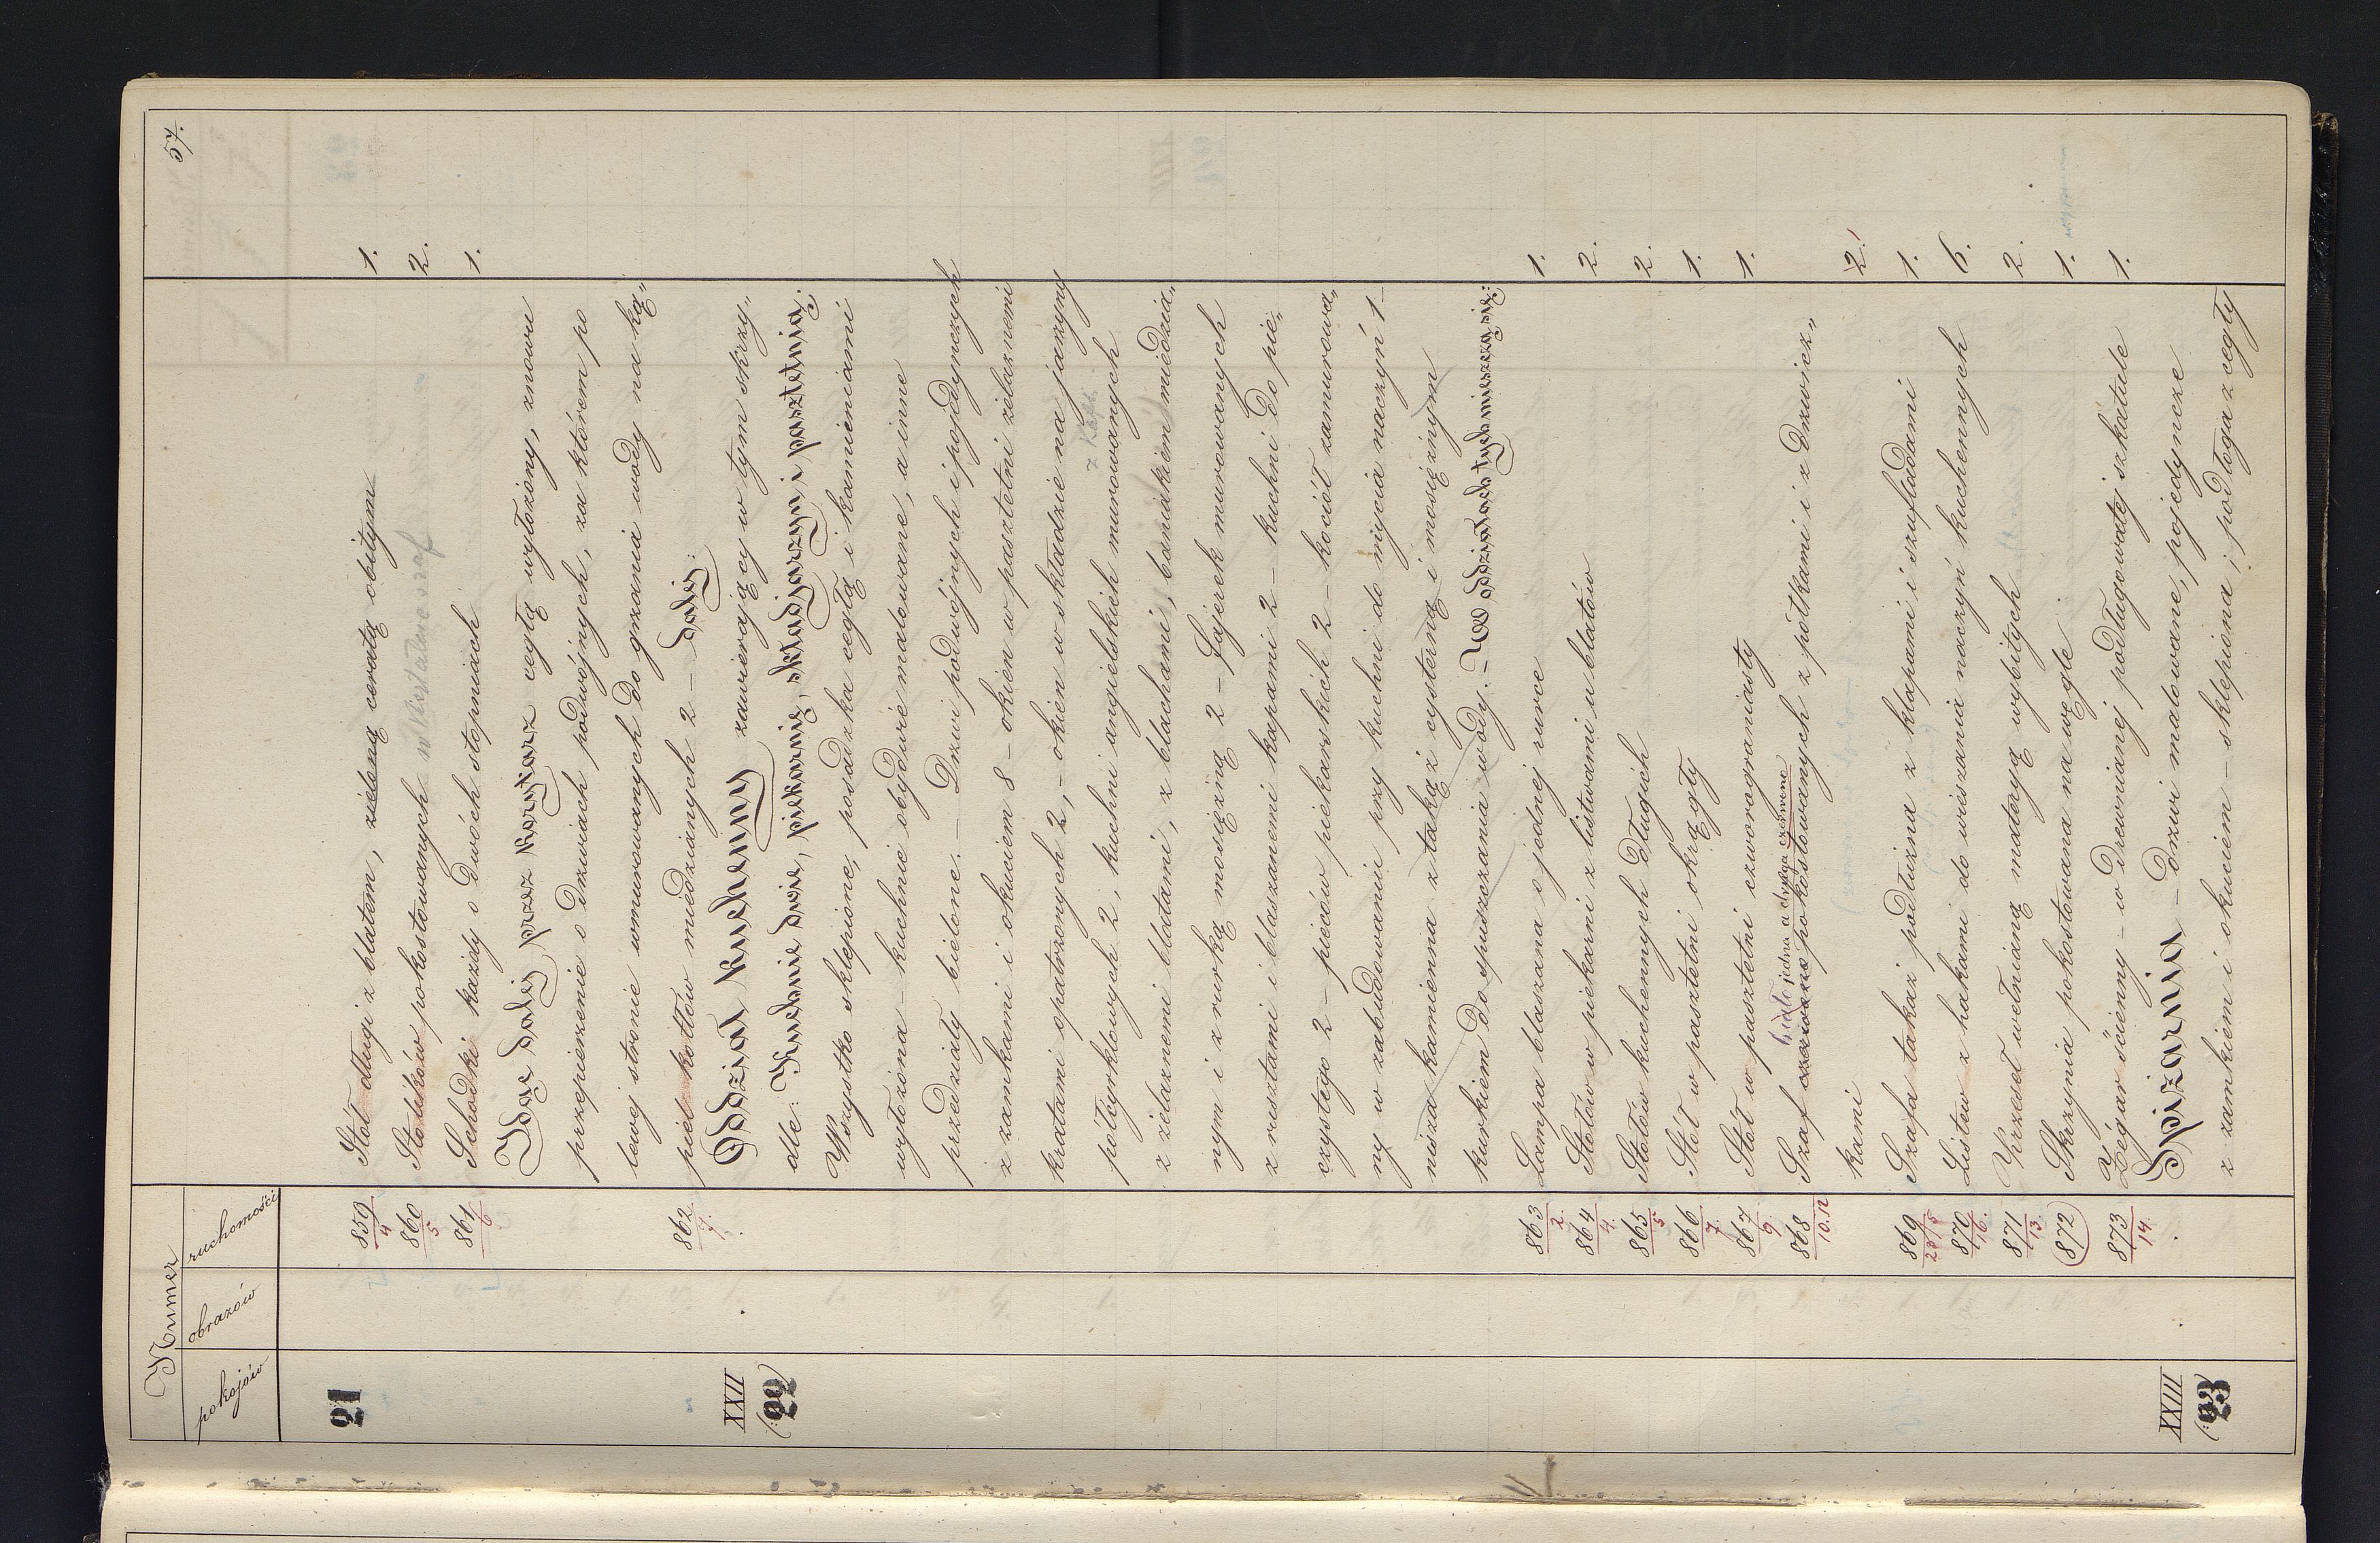 57.
Numer
pokojów obrazów ruchomości
21 859/4 Stół długi z blatem, zieloną ceratą obitym 1.
860/5 Stolików pokostowanych 2.
861/6 Schodki każdy o dwóch stopniach 1.
Idąc dalej przez korytarz cegłą wyłożony, znowu
przepierzenie o drzwiach podwójnych, za którem po
lewej stronie wmurowanych do grzania wody na ką„
862/7. piel kotłów miedzianych 2 – dalej:
XXII Oddział kuchenny zawierający w tym skrzy„
(22) dle: Kuchnie dwie, piekarnię, skład jarzyn i pasztetnią.
Wszystko sklepione, posadzka cegłą i kamieniami
wyłożona – kuchnie obydwie malowane, a inne
przedziały bielone. – Drzwi podwójnych i pojedynczych
z zamkami i okuciem 8 – okien w pasztetni żelaznemi
kratami opatrzonych 2, – okien w składzie na jarzyny
półcyrklowych 2, kuchni angielskich murowanych
z żelaznemi blatami, z blachami, baniakiem miedzia„
nym i z rurką mosiężną 2 – fajerek murowanych
z rusztami i blaszanemi kapami 2 – kuchni do pie„
czystego 2 – pieców piekarskich 2 – kocioł zamurowa„
ny w zabudowaniu przy kuchni do mycia naczyń 1 –
nisza kamienna z takąż cysterną i mosiężnym
kurkiem do spuszczania wody. – W oddziale tym mieszczą się:
863/2. Lampa blaszana o jednej rurce 1.
864/4. Stołów w piekarni z listwami u blatów 2.
865/5 Stołów kuchennych długich 2.
866/7. Stół w pasztetni okrągły 1.
867/9. Stół w pasztetni czworograniasty 1.
biało jedna a druga czerwono
868/10.12 Szaf czerwono pokostowanych z półkami i z drzwicz„
kami 2!
869/20/15 Szafa takaż podłużna z klapami i szufladami 1.
870/16. Listew z hakami do wieszania naczyń kuchennych 6.
871/13. Krzeseł wełnianą materyą wybitych 2.
(872) Skrzynia pokostowana na węgle 1.
873/14. Zégar ścienny – w drewnianej podługowatej szkatule 1.
XXIII Spizarnia – drzwi malowane, pojedyncze
(23) z zamkiem i okuciem – sklepiona; podłoga z cegły